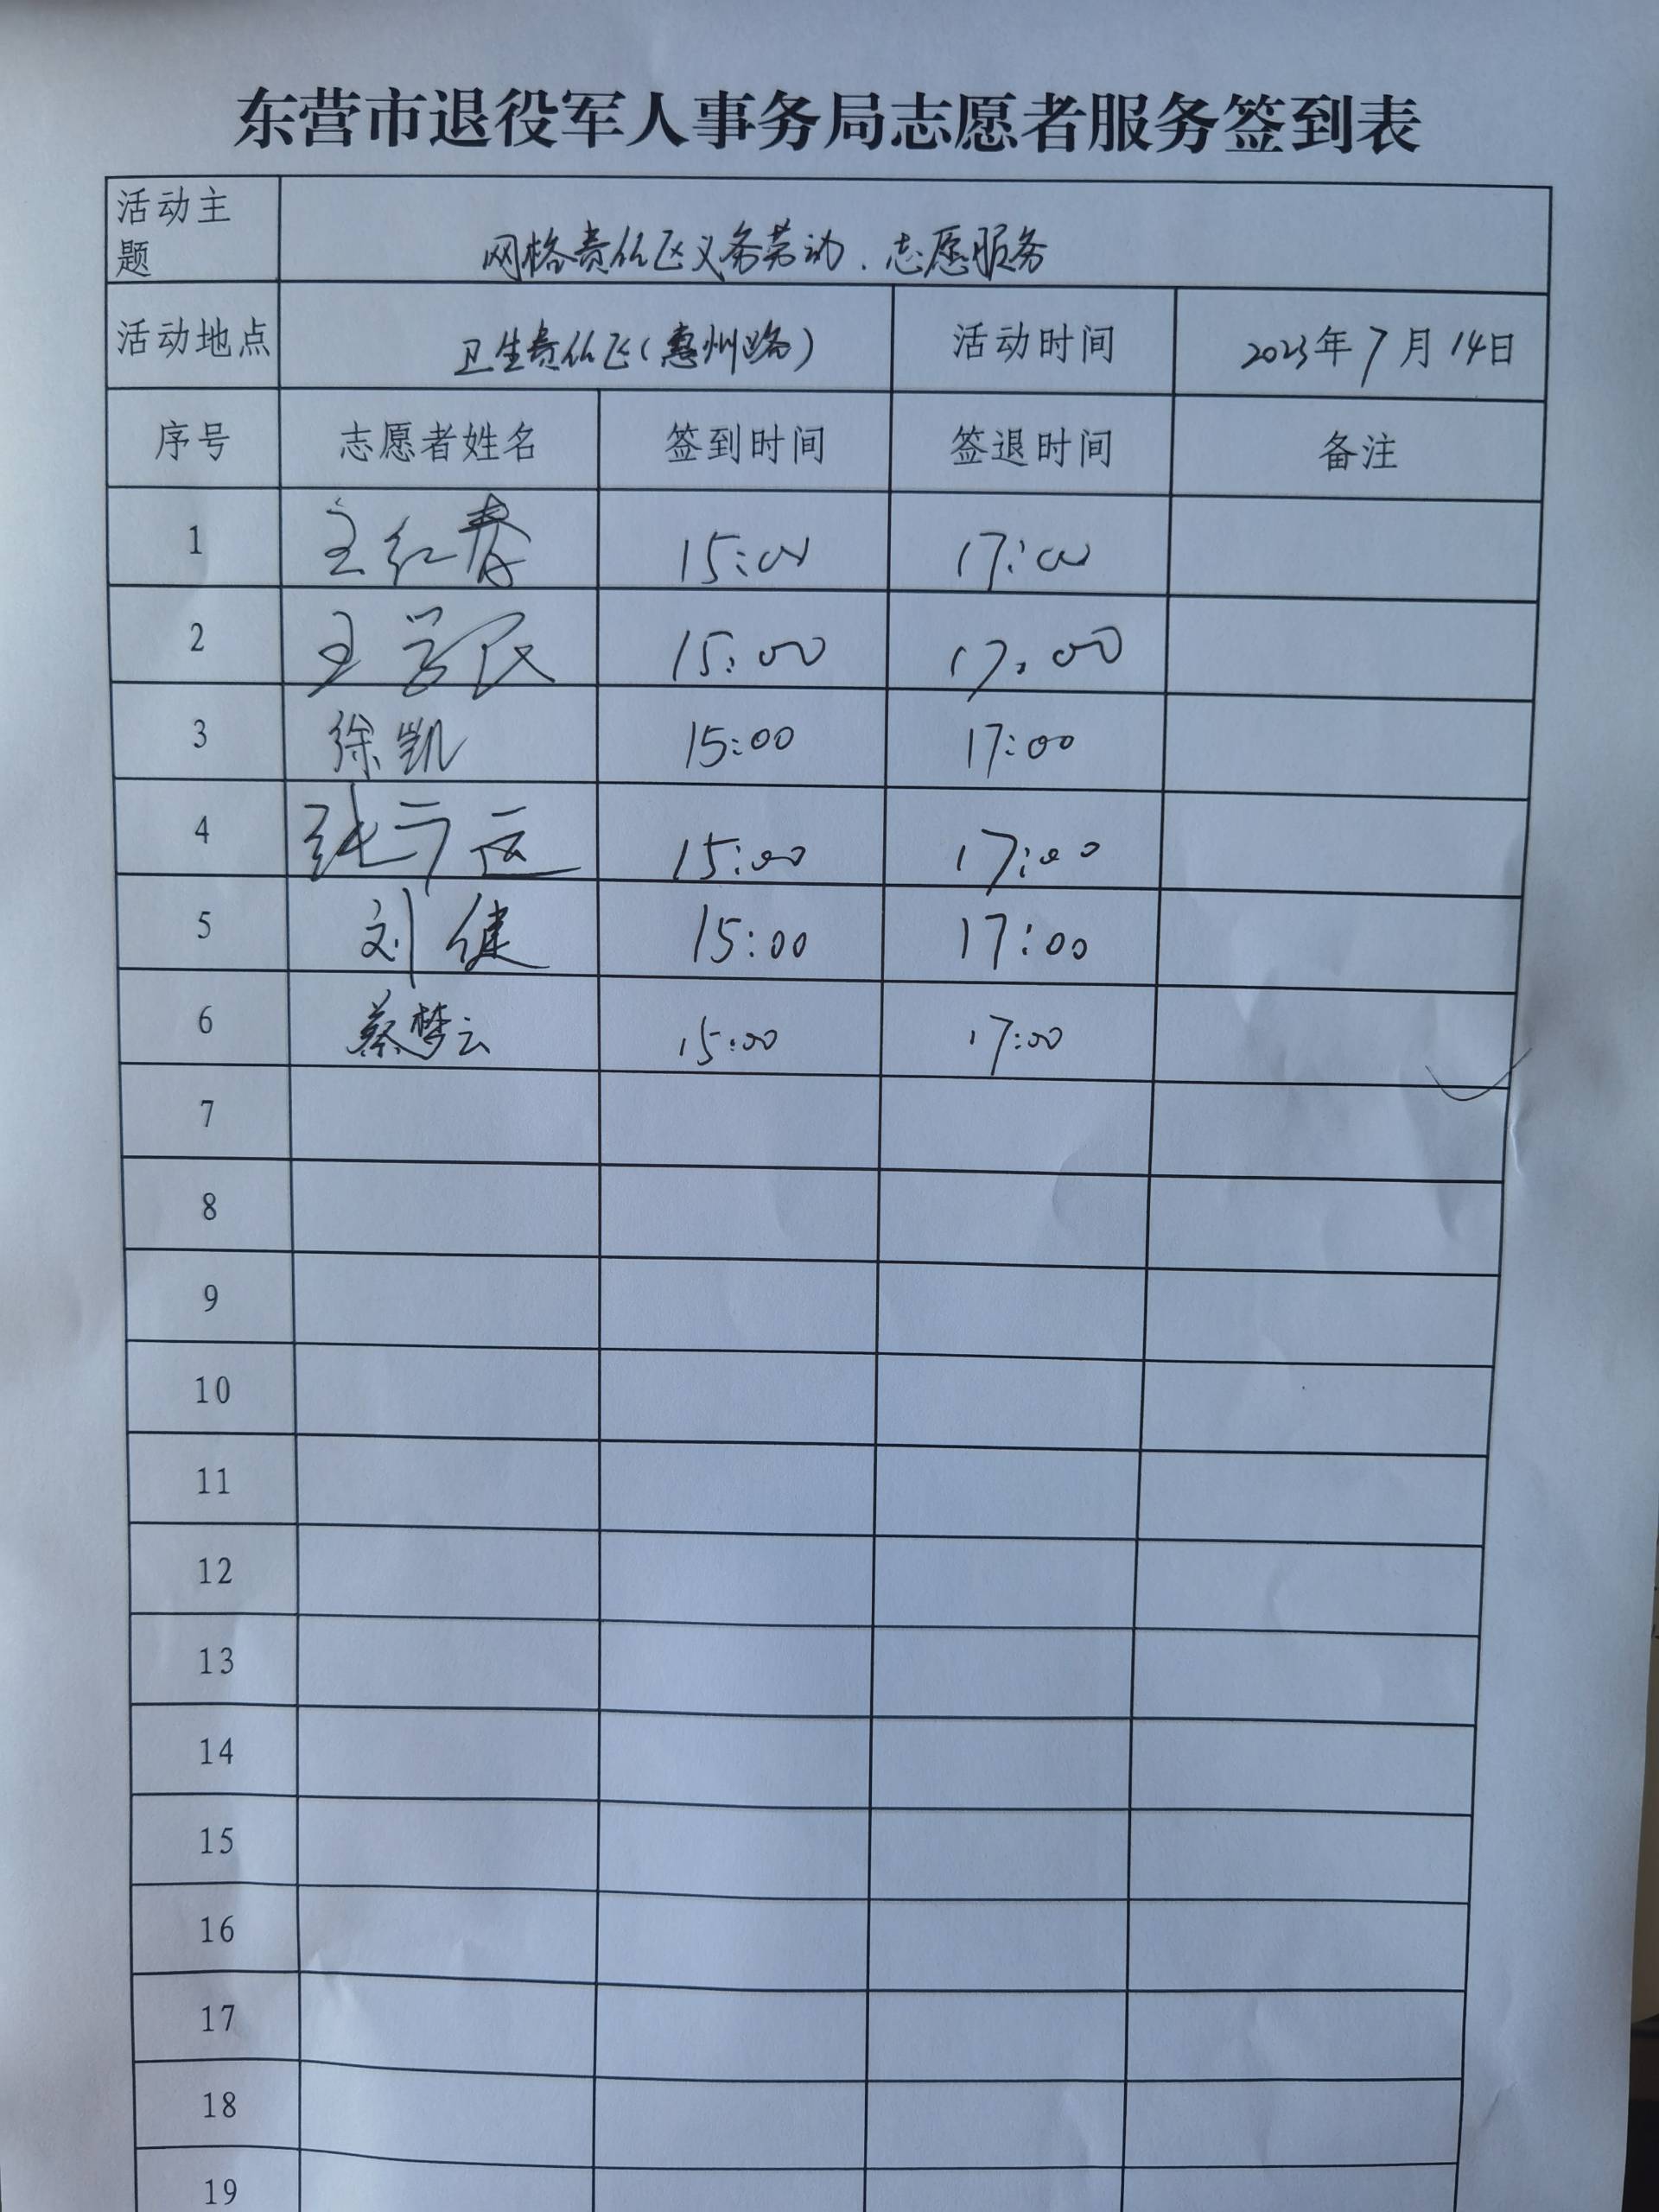 东营市退役军人事务局志愿者服务签到表
活动主题 网格责任区义务劳动、志愿服务
活动地点 卫生责任区(惠州路) 活动时间 2023年7月14日
序号 志愿者姓名 签到时间 签退时间 备注
1 王红春 15:00 17:00
2 王学民 15:00 17:00
3 徐凯 15:00 17:00
4 张 15:00 17:00
5 刘健 15:00 17:00
6 蔡梦云 15:00 17:00
7
8
9
10
11
12
13
14
15
16
17
18
19